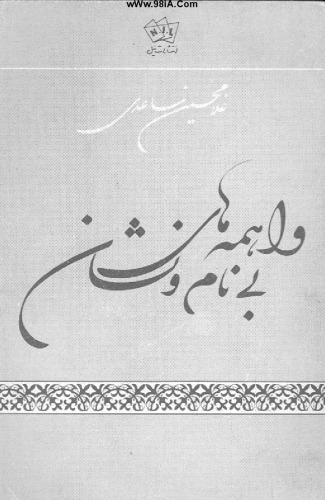 www.98iA.Com
NIL
انتشارات نیل
غلامحسین ساعدی
واهمه های
بی نام و نشان